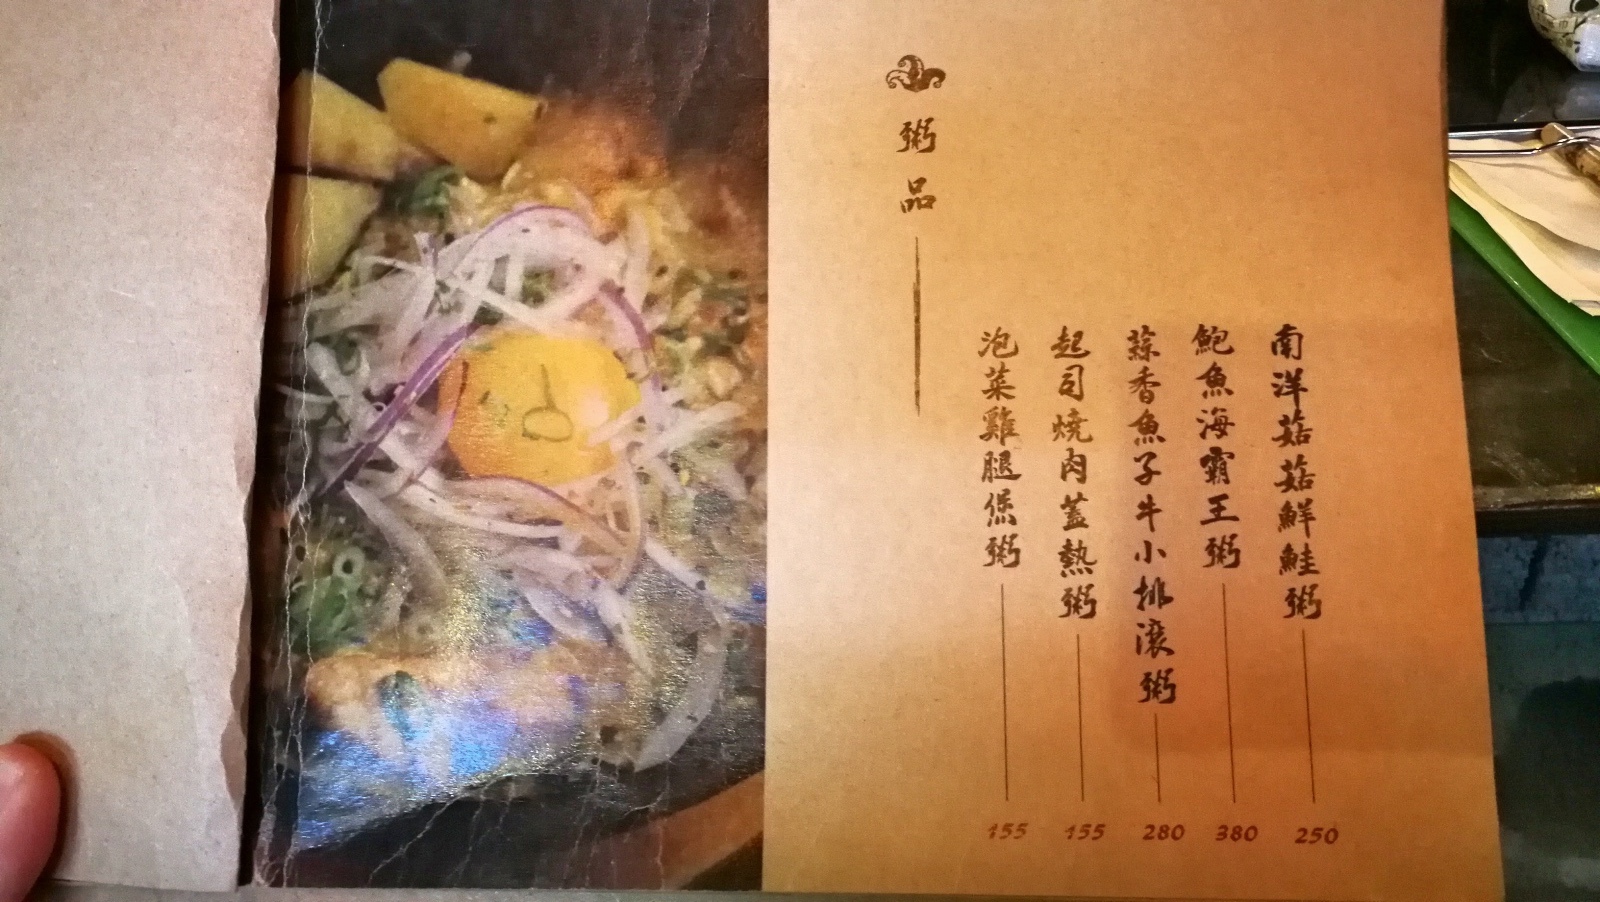 粥品
南洋菇菇鮮鮭粥 250
鮑魚海霸王粥 380
蒜香魚子牛小排滾粥 280
起司燒肉蓋熱粥 155
泡菜雞腿煲粥 155